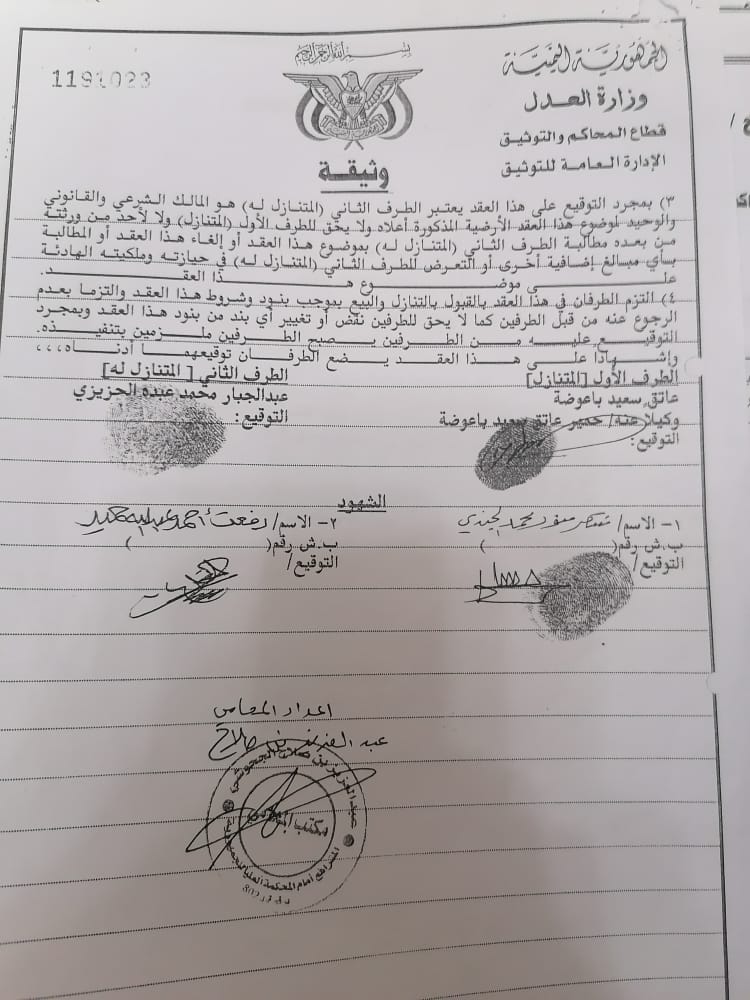 بسم الله الرحمن الرحيم
الجمهورية اليمنية
وزارة العدل
قطاع المحاكم والتوثيق
الإدارة العامة للتوثيق
1191023
وثيقة
٣) بمجرد التوقيع على هذا العقد يعتبر الطرف الثاني (المتنازل له) هو المالك الشرعي والقانوني
والوحيد لموضوع هذا العقد الأرضية المذكورة أعلاه ولا يحق للطرف الأول (المتنازل) ولا لأحد من ورثته
من بعده مطالبة الطرف الثاني (المتنازل له) بموضوع هذا العقد أو إلغاء هذا العقد أو المطالبة
بأي مبالغ إضافية أخرى أو التعرض للطرف الثاني (المتنازل له) في حيازته وملكيته الهادئة
على موضوع هذا العقد.
٤) التزم الطرفان في هذا العقد بالقبول بالتنازل والبيع بموجب بنود وشروط هذا العقد والتزما بعدم
الرجوع عنه من قبل الطرفين كما لا يحق للطرفين نقض أو تغيير أي بند من بنود هذا العقد وبمجرد
التوقيع عليه من الطرفين يصبح الطرفين ملزمين بتنفيذه.
وإشهاداً على هذا العقد يضع الطرفان توقيعهما أدناه،،،
الطرف الأول [المتنازل] الطرف الثاني [المتنازل له]
عاتق سعيد باعوضة عبدالجبار محمد عبده الحزيزي
وكيلا عنه/ حمير عاتق سعيد باعوضة التوقيع:
التوقيع:
الشهود
١- الاسم/ محمد الجنيدي ٢- الاسم/ رفعت أحمد عبدالله حميد
ب.ش رقم( ) ب.ش رقم( )
التوقيع/ التوقيع/
اعداد المحامي
عبد العزيز بن صلاح
عبدالعزيز بن صلاح
مكتب
المحكمة العليا